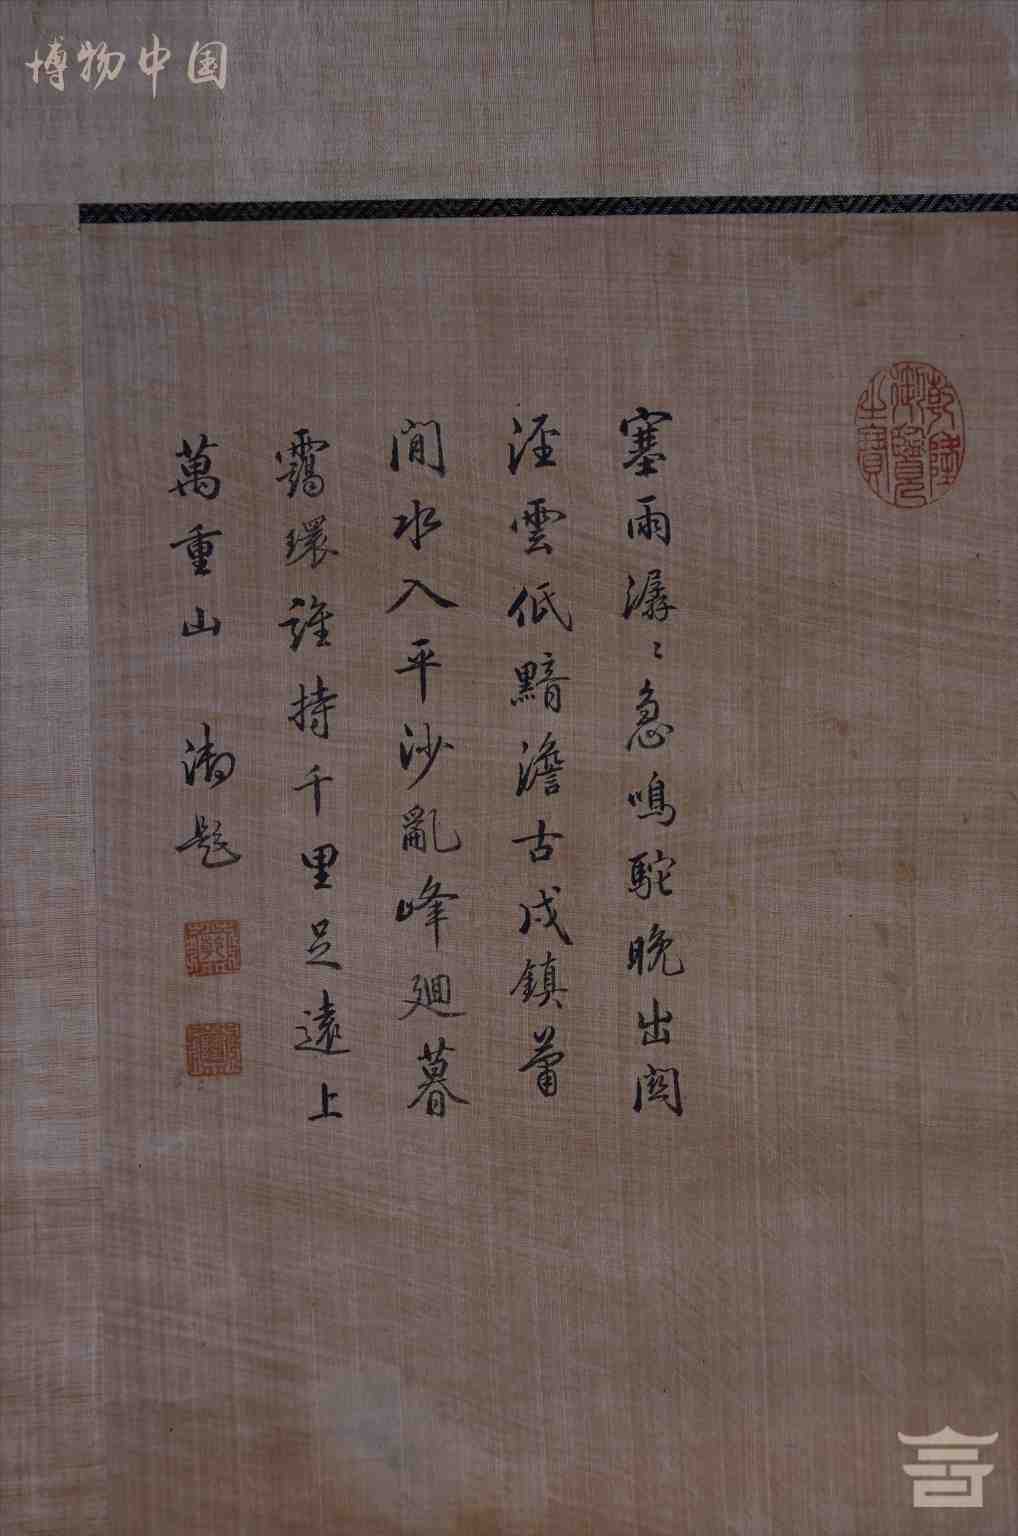 博物中国
乾隆御覽之寶
塞雨潺〻急鳴駝晚出関
溼雲低黯澹古戍鎮蕭
閒水入平沙亂峰廻暮
靄環誰持千里足遠上
萬重山 御題